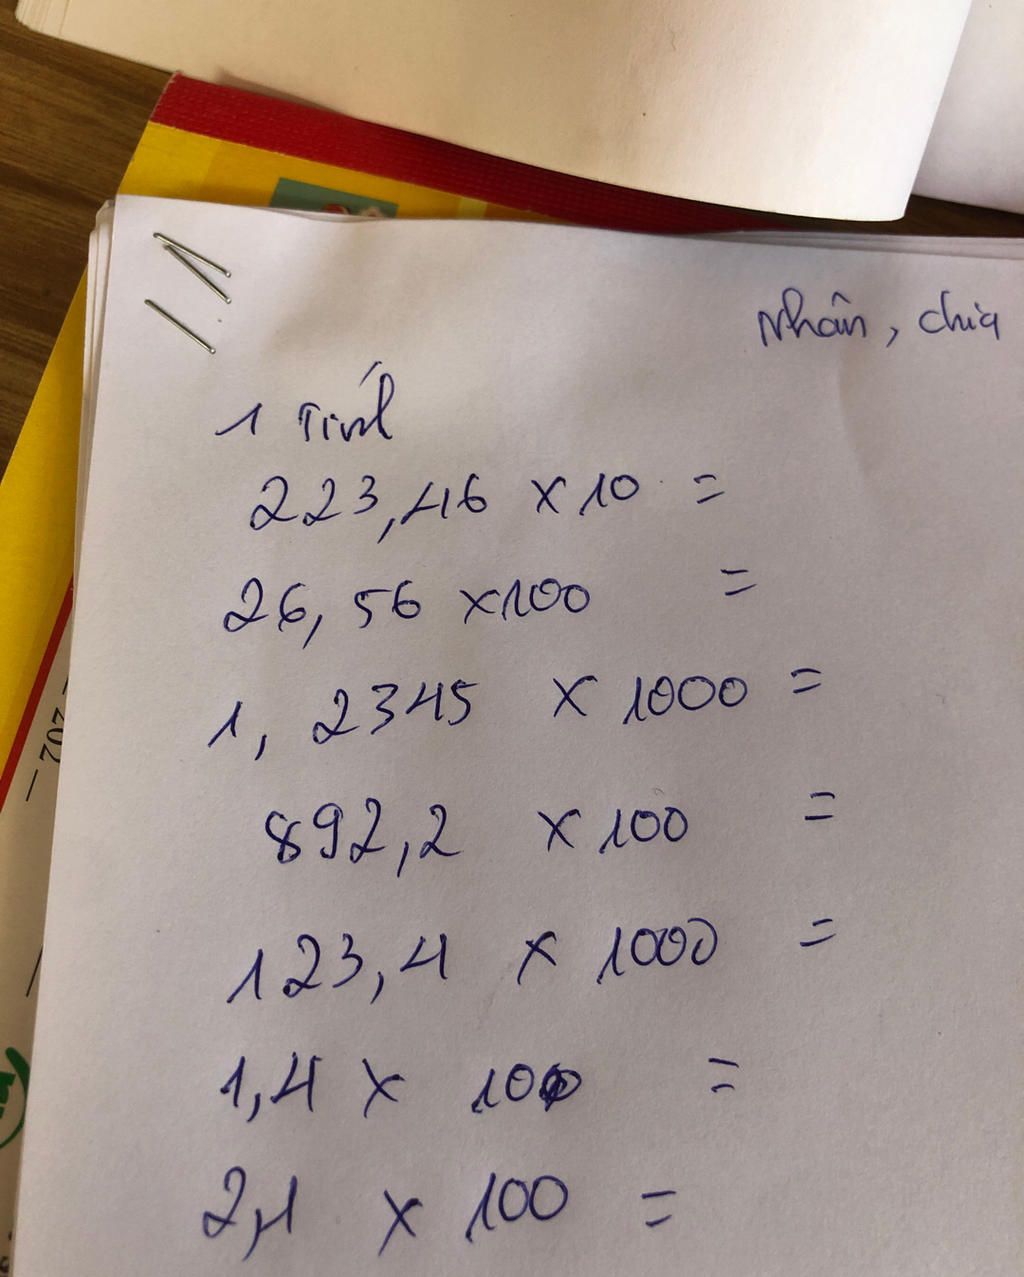 Nhân, chia
1 Tính
223,46 x 10 =
26,56 x 100 =
1,2345 x 1000 =
892,2 x 100 =
123,4 x 1000 =
1,4 x 100 =
2,1 x 100 =